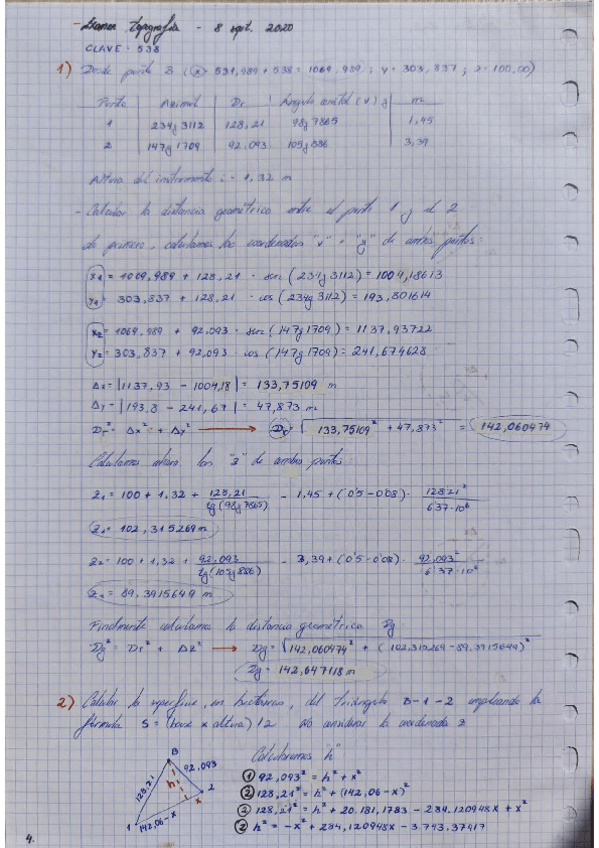 - Examen topografía - 8 sept. 2020
CLAVE - 538
1) Desde punto B (x = 531,989 + 538 = 1069,989; y = 303,837; z = 100,00)
Punto | Azimut | Dr | Ángulo cenital (V) g | m
1 | 234g 3112 | 128,21 | 98g 7865 | 1,45
2 | 147g 1709 | 92.093 | 105g 886 | 3,39
Altura del instrumento i = 1,32 m
- Calcular la distancia geométrica entre el punto 1 y el 2
de primero, calculamos las coordenadas "x" e "y" de ambos puntos:
x₁ = 1069,989 + 128,21 · sen (234g 3112) = 1004,18613
y₁ = 303,837 + 128,21 · cos (234g 3112) = 193,801614
x₂ = 1069,989 + 92.093 · sen (147g 1709) = 1137,93722
y₂ = 303,837 + 92.093 · cos (147g 1709) = 241,674628
Δx = |1137,93 - 1004,18| = 133,75109 m
Δy = |193,8 - 241,67| = 47,873 m
Dr² = Δx² + Δy² → Dr = √133,75109² + 47,873² = 142,060474
Calculamos ahora los "z" de ambos puntos:
z₁ = 100 + 1,32 + 128,21/tg(98g 7865) - 1,45 + (0'5 - 0'08) · 128'21²/6'37·10⁶
z₁ = 102,315269 m
z₂ = 100 + 1,32 + 92.093/tg(105g 886) - 3,39 + (0'5 - 0'08) · 92,093²/6'37·10⁶
z₂ = 89,3915649 m
Finalmente calculamos la distancia geométrica Dg
Dg² = Dr² + Δz² → Dg = √142,060474² + (102,315269 - 89,3915649)²
Dg = 142,647118 m
2) Calcular la superficie, en hectáreas, del triángulo B-1-2 empleando la
fórmula S = (base x altura) / 2. No considerar la coordenada z
Calculamos "h"
B
128,21
92,093
h
x
2
1
142,06 - x
① 92,093² = h² + x²
② 128,21² = h² + (142,06 - x)²
② 128,21² = h² + 20.181,1783 - 284,120948x + x²
② h² = -x² + 284,120948x - 3.743,37417
4.